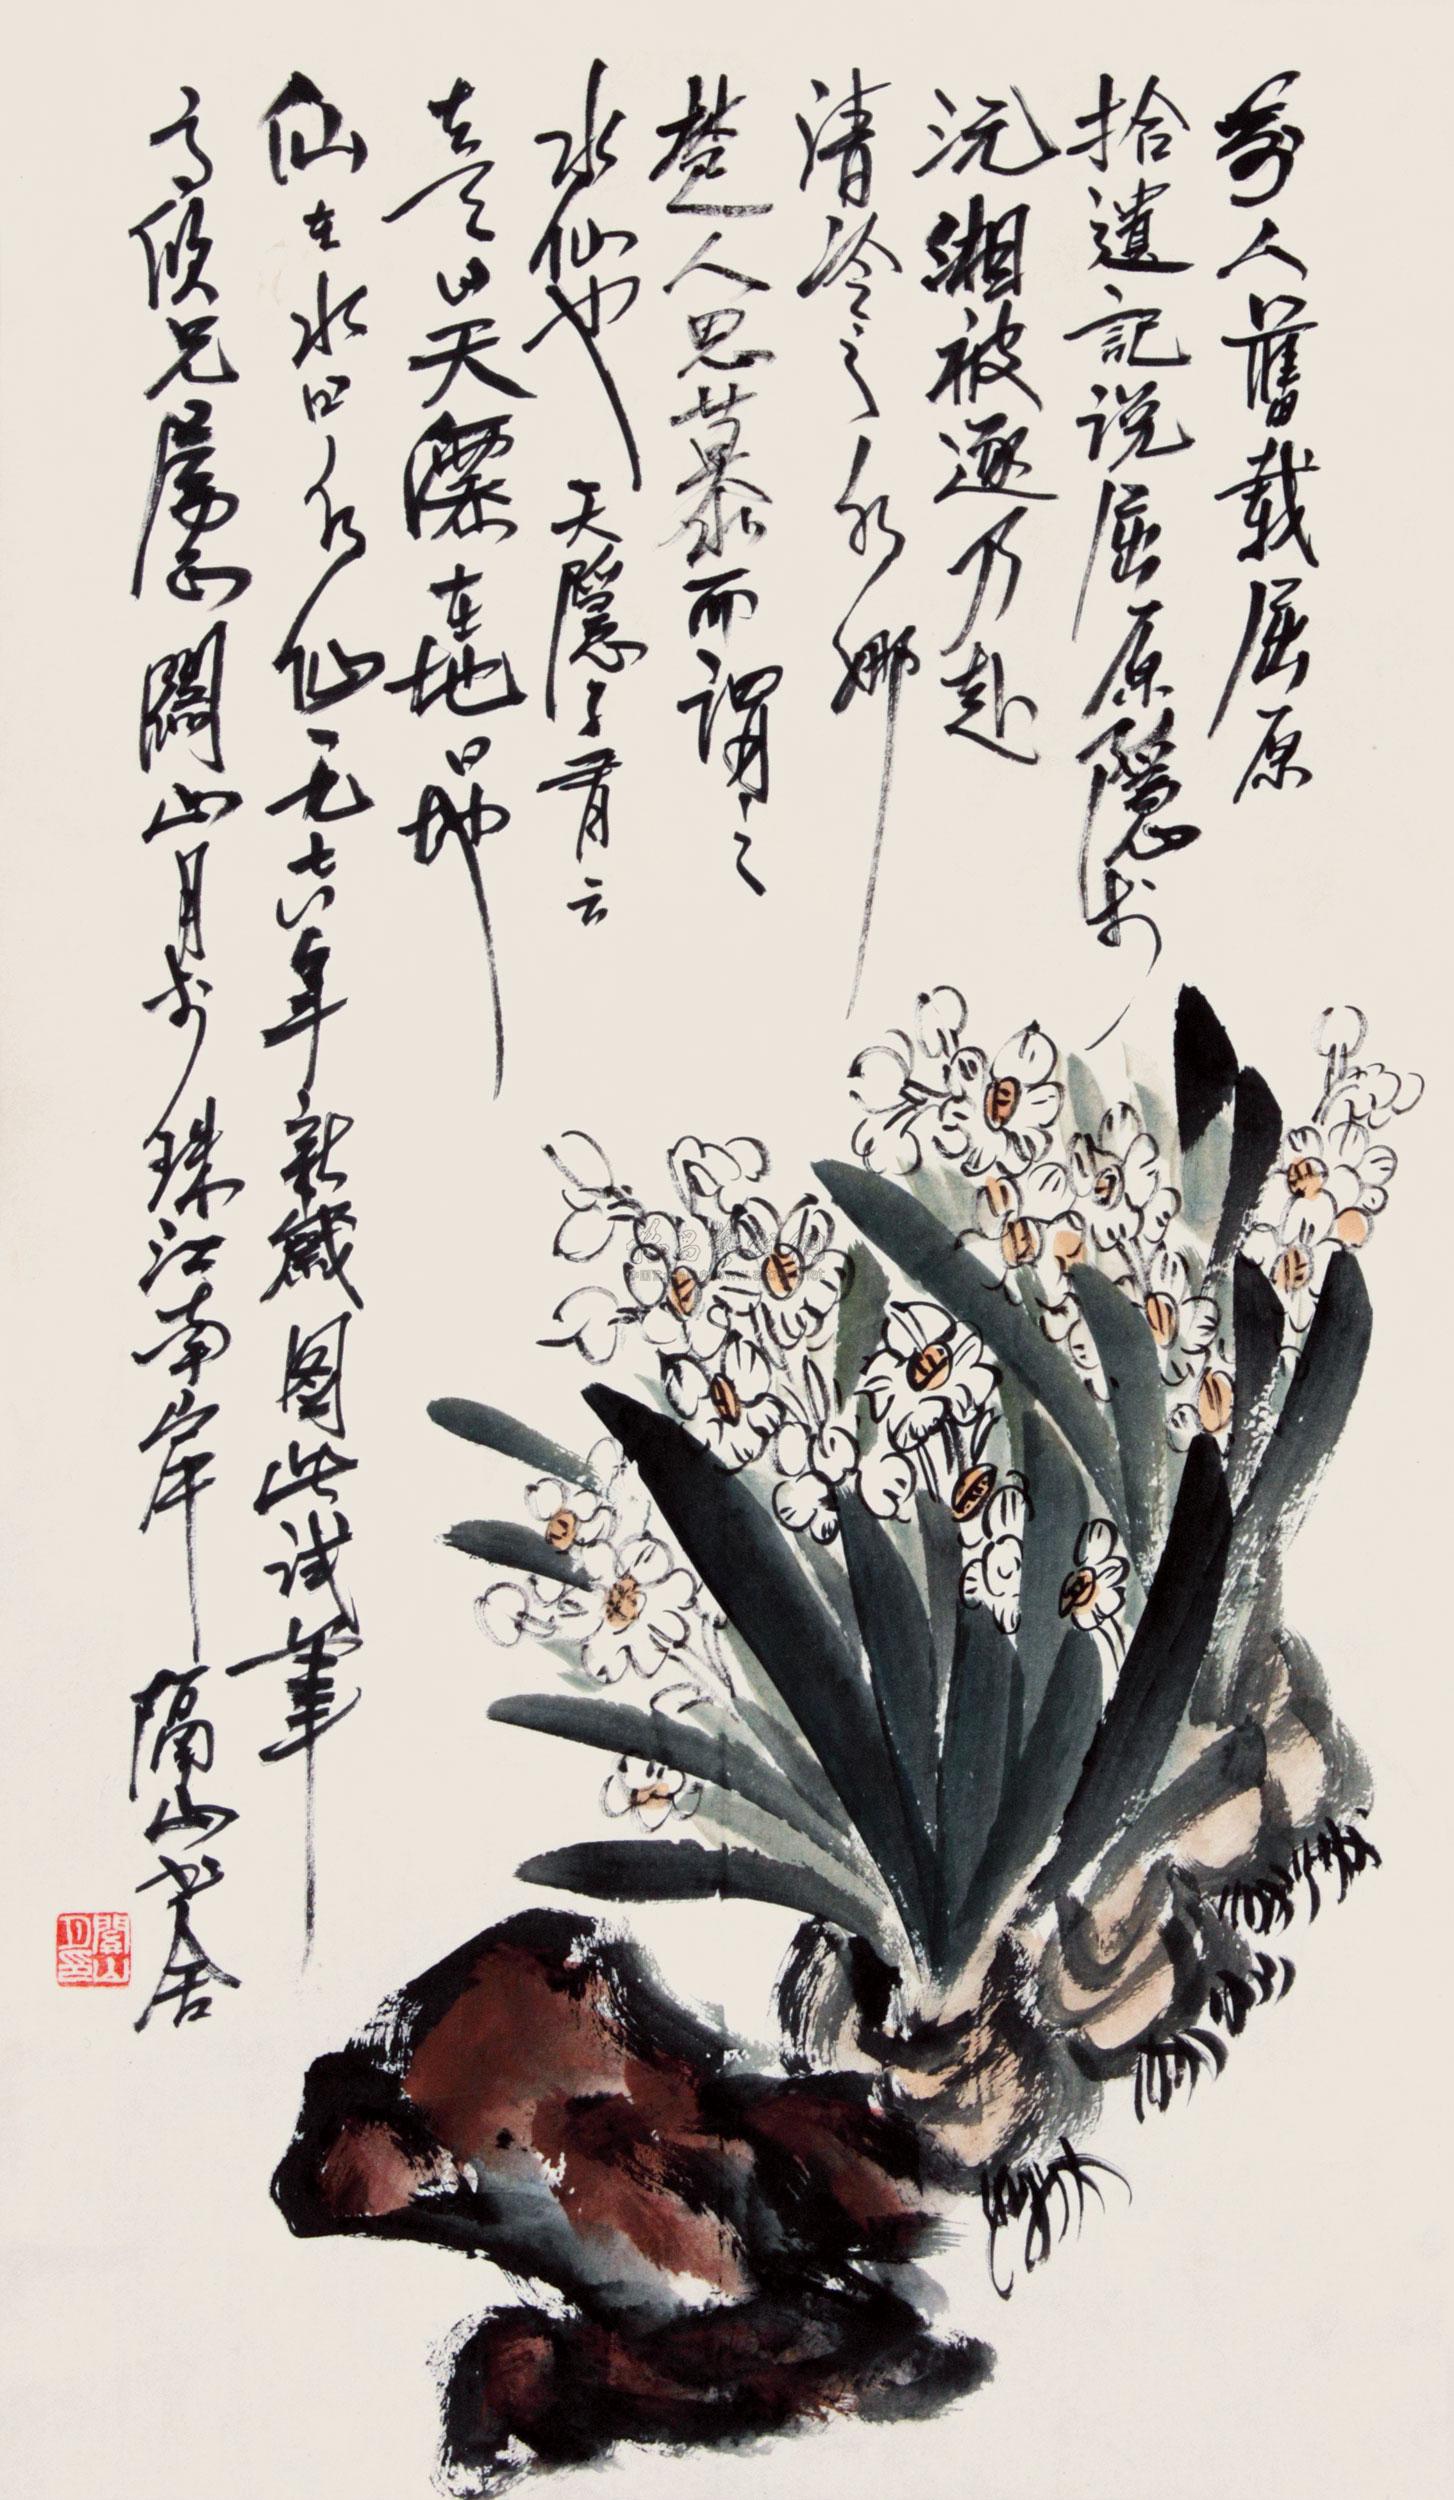 人舊載屈原
拾遺記说屈原隱於
沅湘被逐乃赴
清泠之水
楚人思慕而謂之
水仙也 天隱子有云
在天曰天僊在地曰地
仙在水曰水仙一九七六年新歲圖此试筆
兄属正 關山月於珠江南岸隔山書舍
關山月印